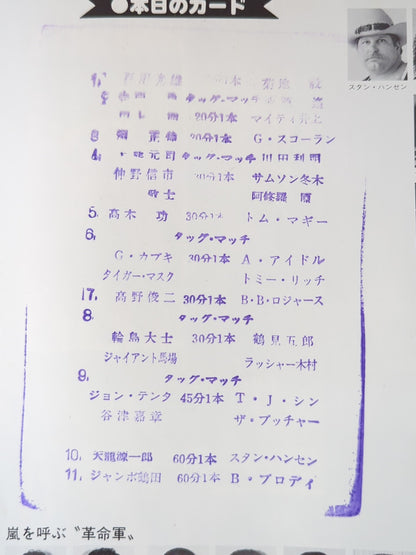 ●本日のカード
スタン・ハンセン
1. 百田光雄 20分1本 菊地 毅
2. タッグ・マッチ
20分1本 マイティ井上
3. 30分1本 G・スコーラン
4. タッグ・マッチ 川田利明
仲野信市 30分1本 サムソン冬木
敬士 阿修羅 原
5. 高木 功 30分1本 トム・マギー
6. タッグ・マッチ
G・カブキ 30分1本 A・アイドル
タイガー・マスク トミー・リッチ
17. 高野俊二 30分1本 B・B・ロジャース
8. タッグ・マッチ
輪島大士 30分1本 鶴見五郎
ジャイアント馬場 ラッシャー木村
9. タッグ・マッチ
ジョン・テンタ 45分1本 T・J・シン
谷津嘉章 ザ・ブッチャー
10. 天龍源一郎 60分1本 スタン・ハンセン
11. ジャンボ鶴田 60分1本 B・ブロディ
嵐を呼ぶ〝革命軍〟